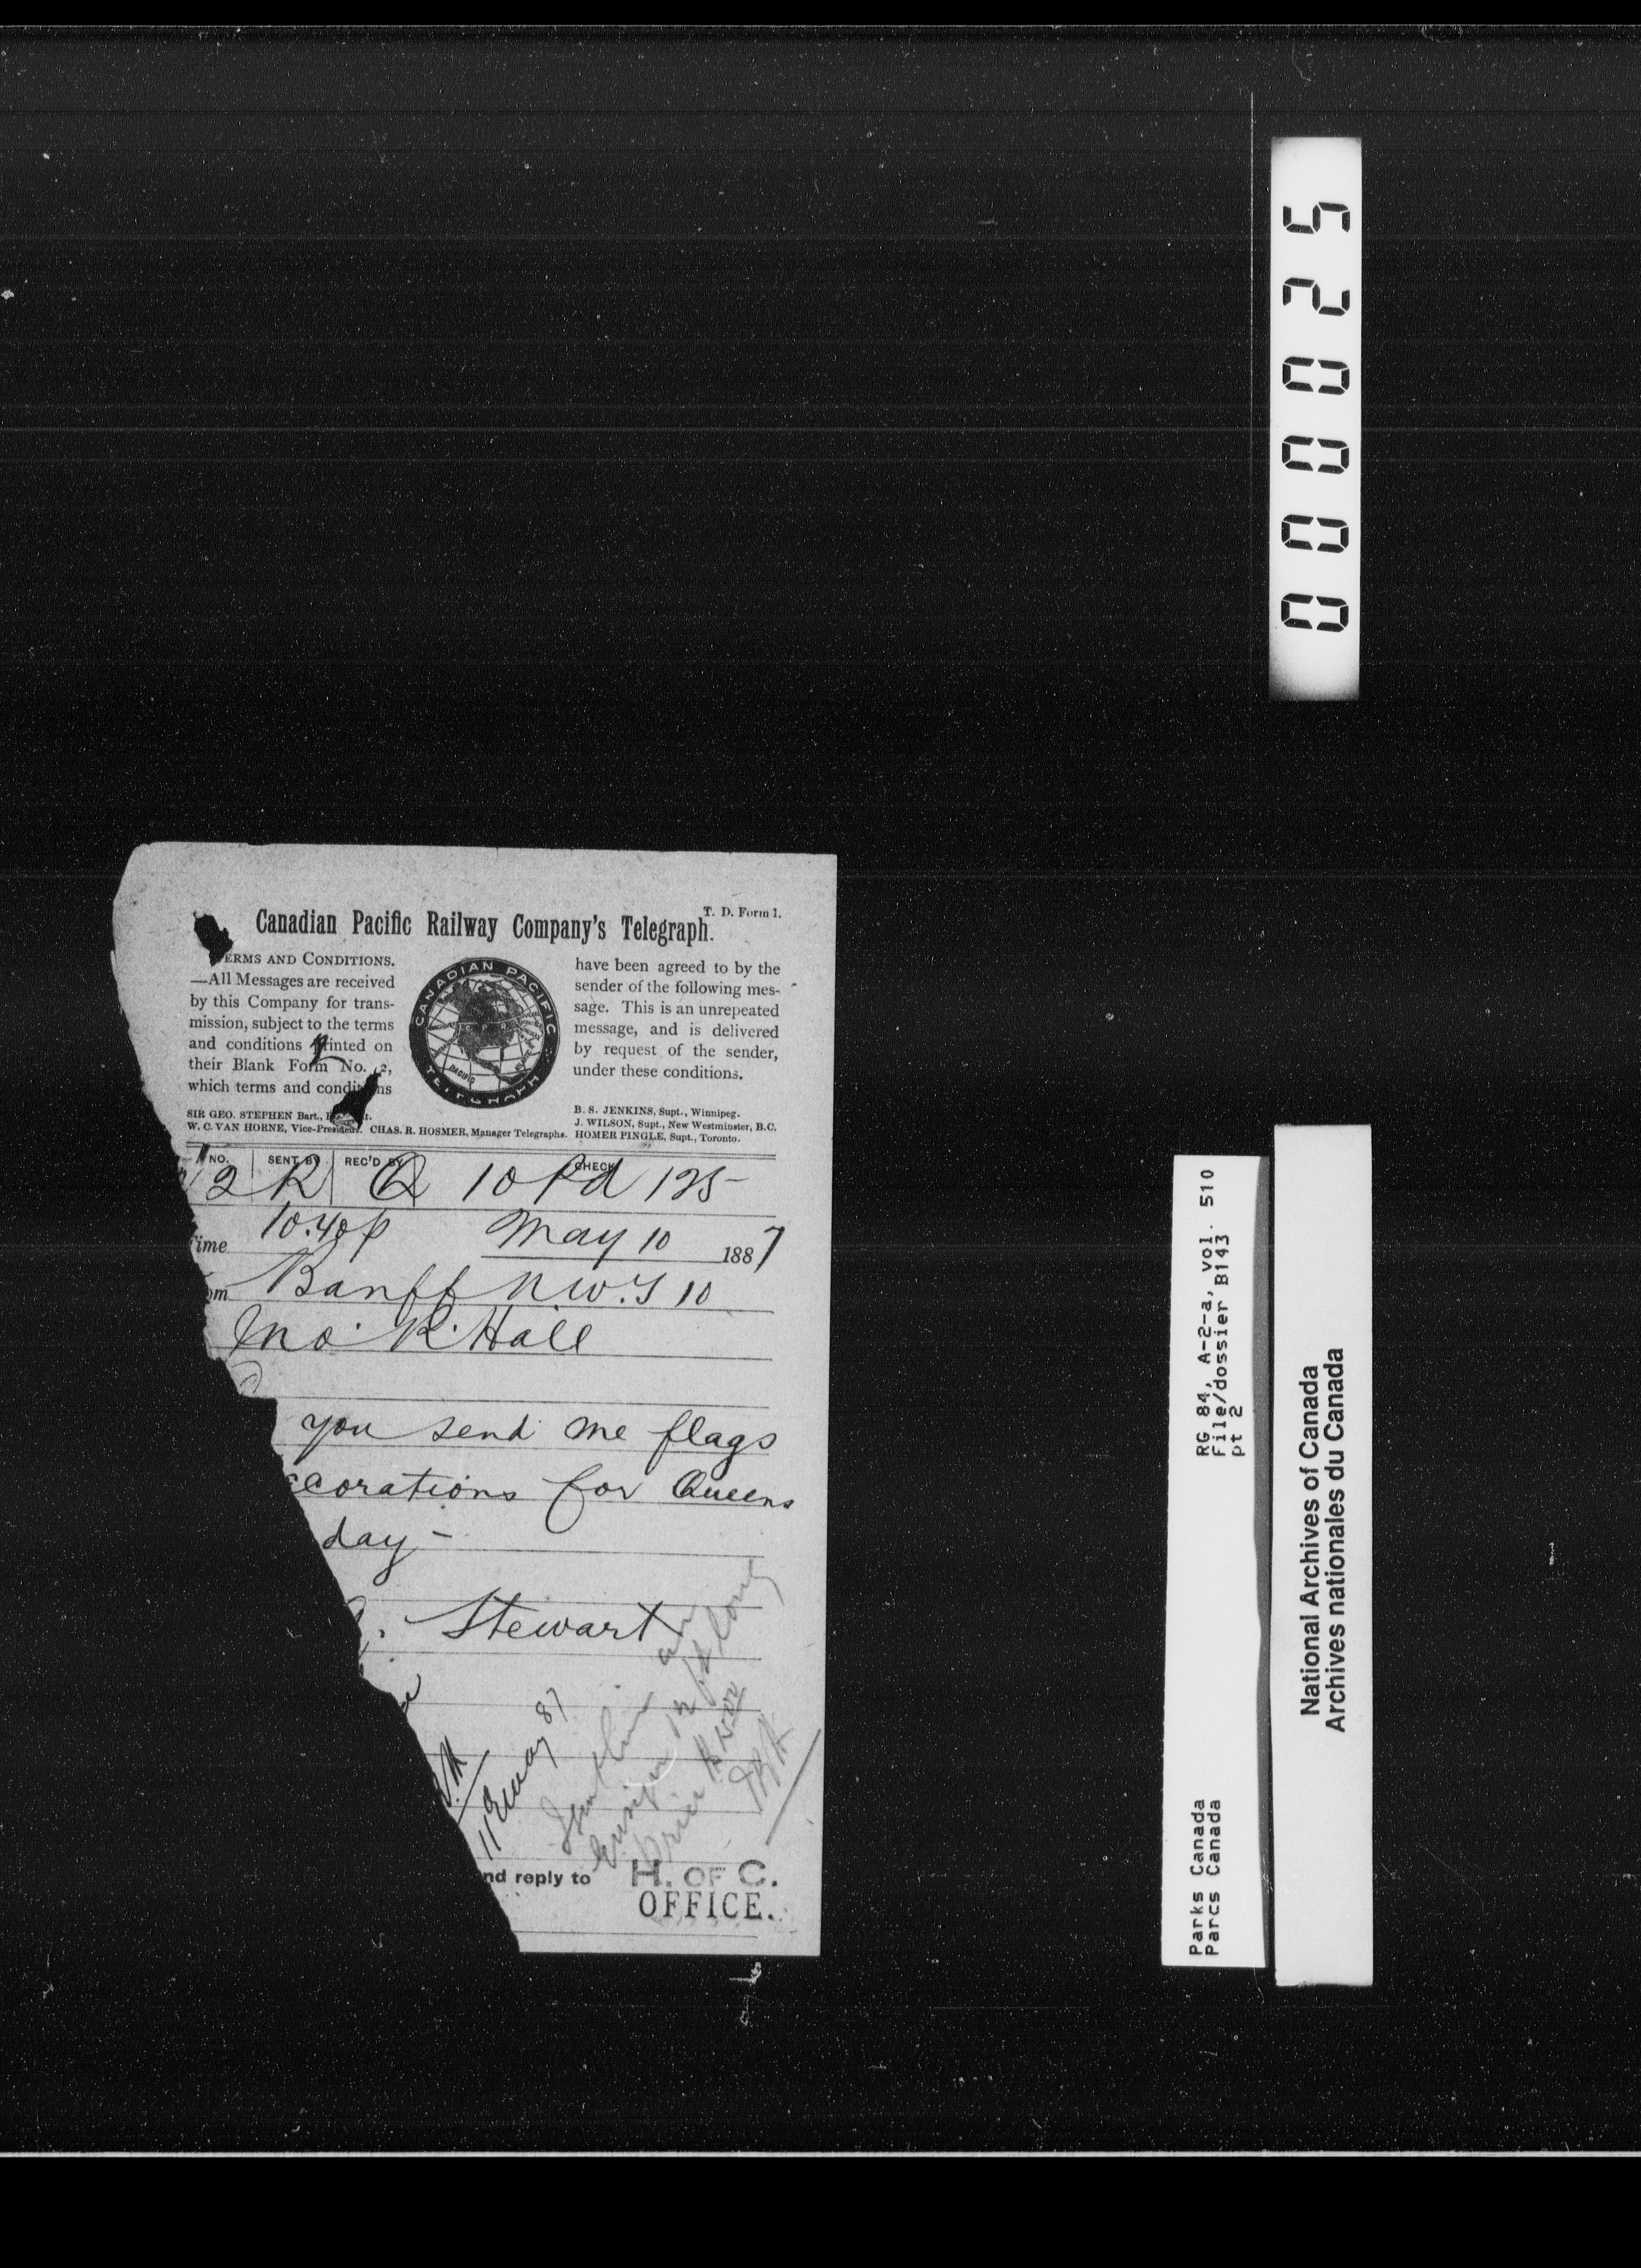 000025
T. D. Form 1.
Canadian Pacific Railway Company's Telegraph.
ERMS AND CONDITIONS.
—All Messages are received
by this Company for trans-
mission, subject to the terms
and conditions printed on
their Blank Form No. 2,
which terms and conditions
CANADIAN PACIFIC
TELEGRAPH
PACIFIC
have been agreed to by the
sender of the following mes-
sage. This is an unrepeated
message, and is delivered
by request of the sender,
under these conditions.
SIR GEO. STEPHEN Bart.,
W. C. VAN HORNE, Vice-President. CHAS. R. HOSMER, Manager Telegraphs.
B. S. JENKINS, Supt., Winnipeg.
J. WILSON, Supt., New Westminster, B.C.
HOMER PINGLE, Supt., Toronto.
NO. SENT BY REC'D BY CHECK
2 R Q 10 Pd 125
ime 10.40p May 10 1887
om Banff N.W.T 10
Jno. R. Hall
you send me flags
ecorations for Queens
day -
. Stewart
11 May 87
nd reply to H. OF C.
OFFICE.
RG 84, A-2-a, vol. 510
File/dossier B143
pt 2
Parks Canada
Parcs Canada
National Archives of Canada
Archives nationales du Canada